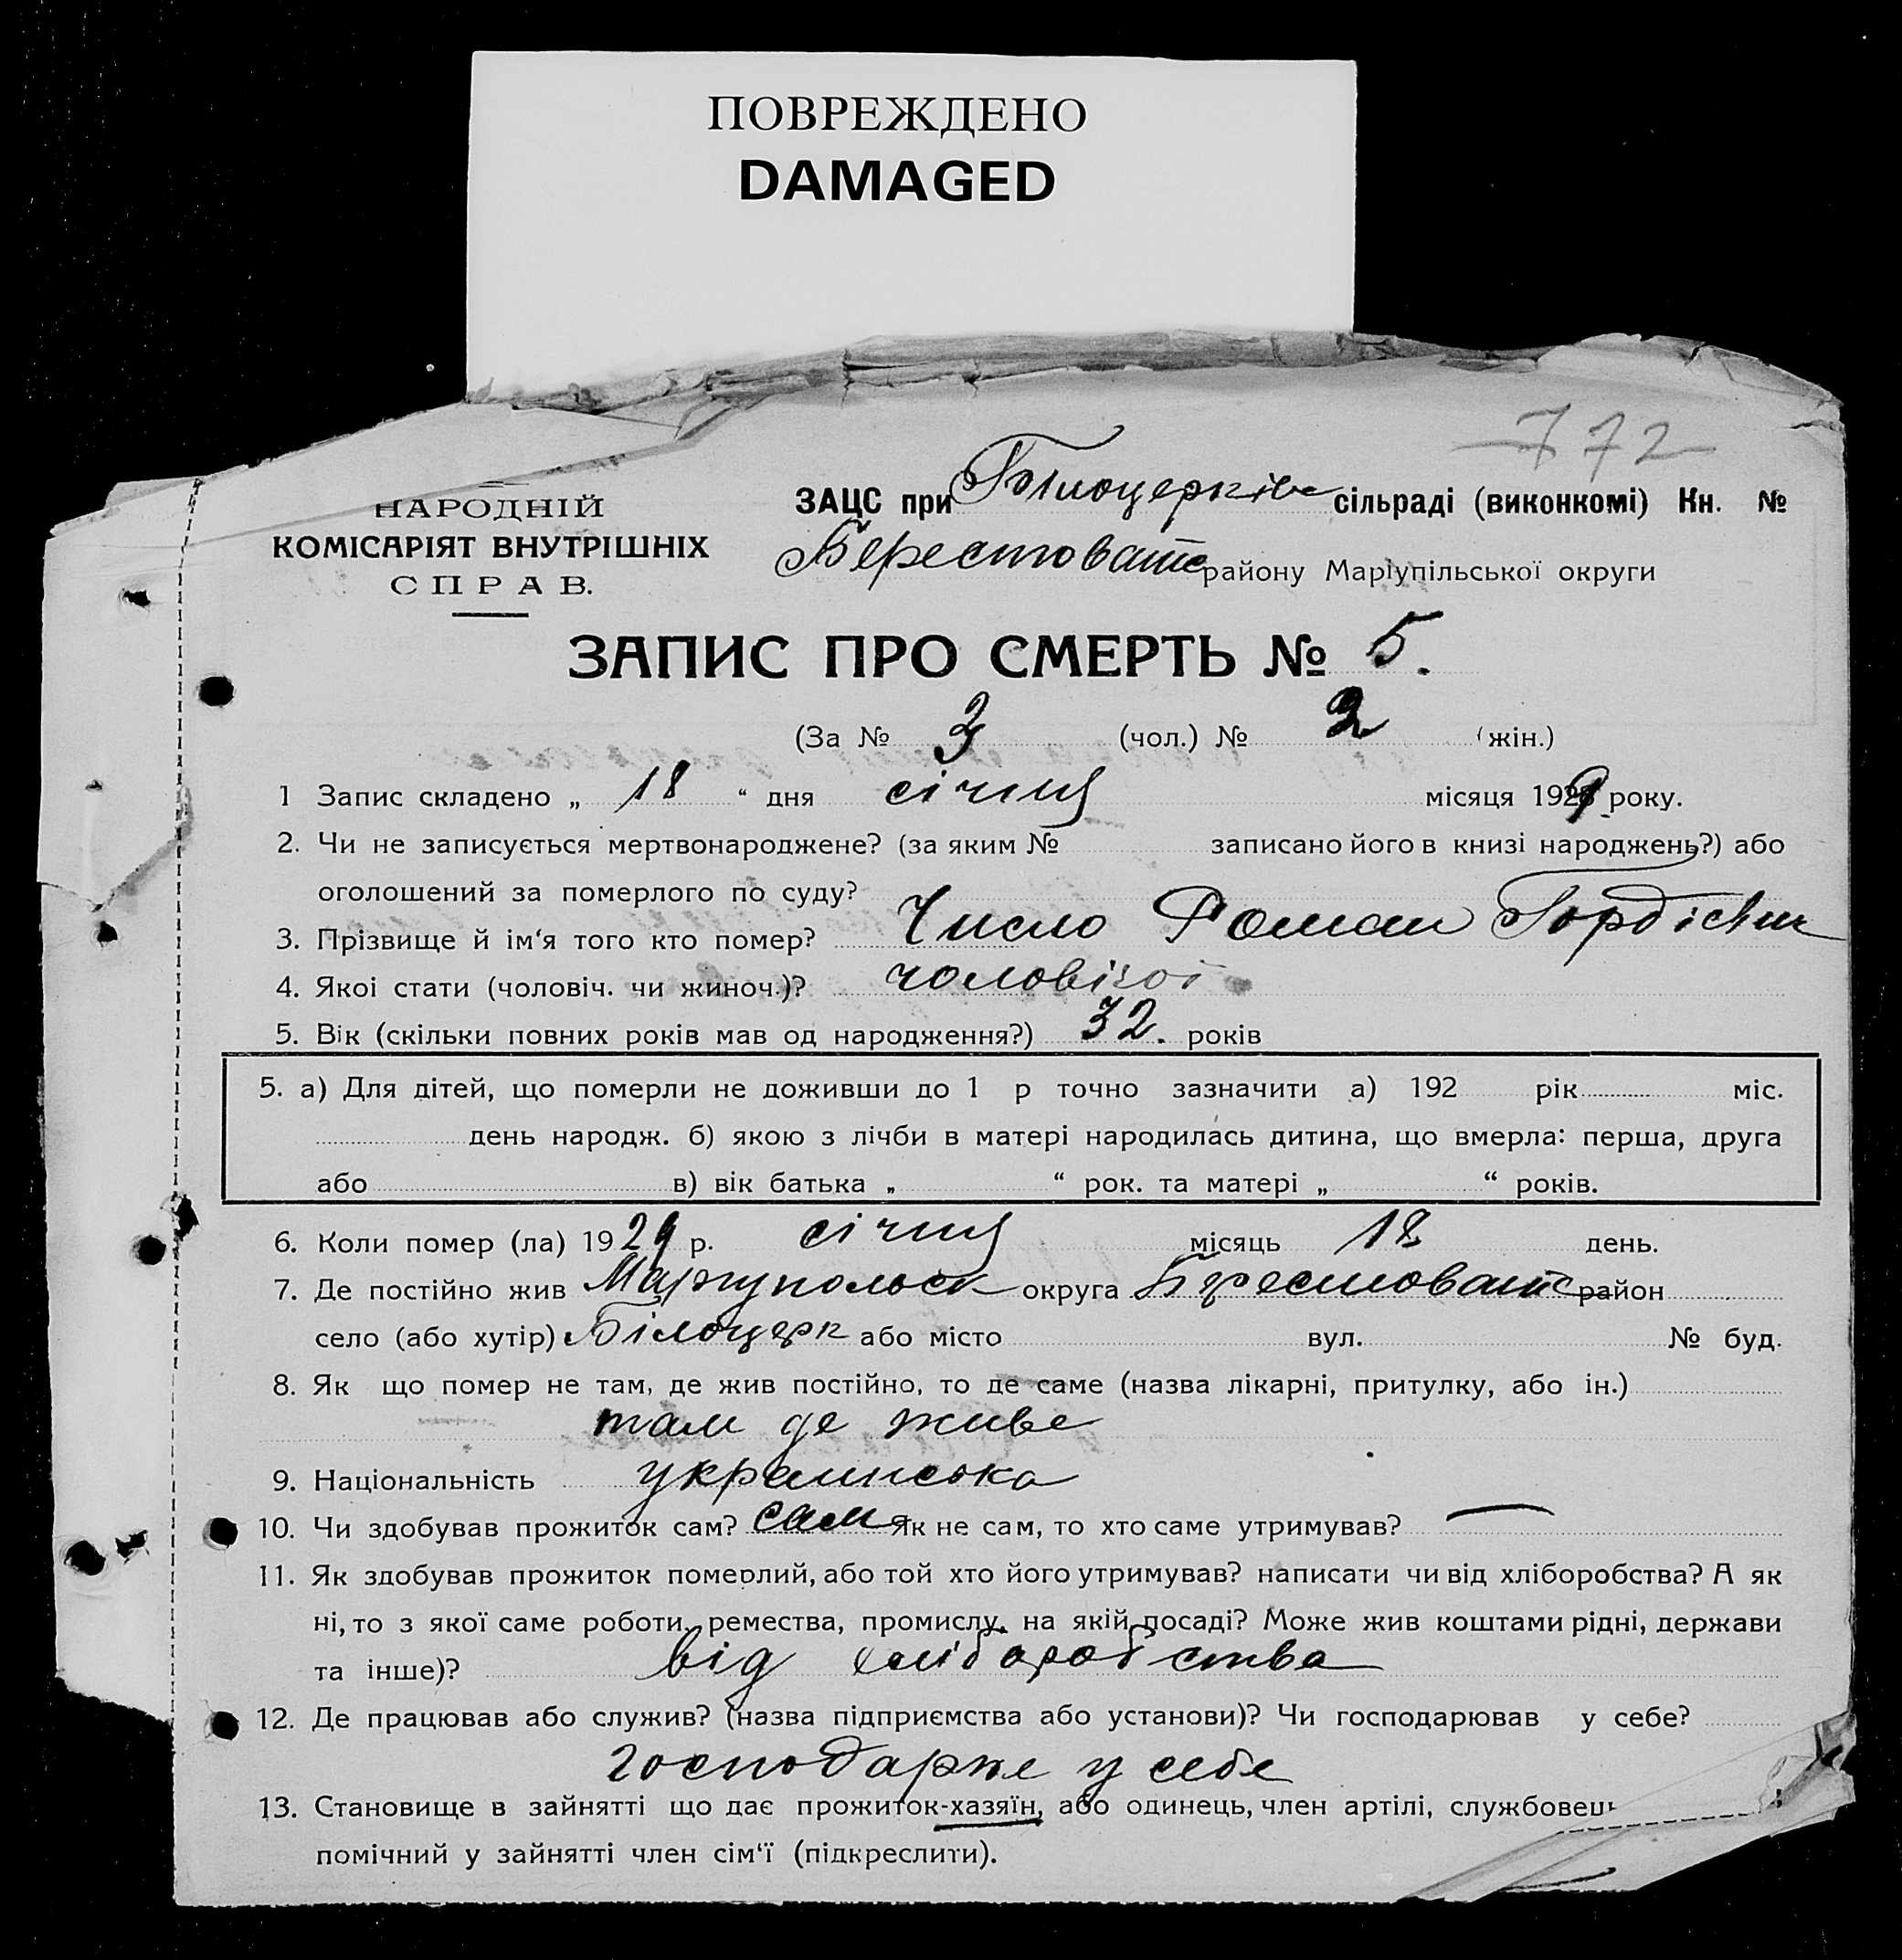 ПОВРЕЖДЕНО
DAMAGED
772
НАРОДНІЙ
КОМІСАРІЯТ ВНУТРІШНІХ
СПРАВ.
ЗАЦС при Білоцерків сільраді (виконкомі) Кн. №
Берестоват району Маріупільської округи
ЗАПИС ПРО СМЕРТЬ № 5.
(За № 3 (чол.) № 2 (жін.)
1 Запис складено „ 18 “ дня січня місяця 1929 року.
2. Чи не записується мертвонароджене? (за яким № записано його в книзі народжень?) або
оголошений за померлого по суду?
3. Прізвище й ім‘я того кто помер? Число Роман Гордієвич
4. Якоі стати (чоловіч. чи жиноч.)? чоловічої
5. Вік (скільки повних років мав од народження?) 32. років
5. а) Для дітей, що померли не доживши до 1 р точно зазначити а) 192 рік міс.
день народж. б) якою з лічби в матері народилась дитина, що вмерла: перша, друга
або в) вік батька „ “ рок. та матері „ “ років.
6. Коли помер (ла) 1929 р. січня місяць 18 день.
7. Де постійно жив Маріупольськ округа Берестоват район
село (або хутір) Білоцерк або місто вул. № буд.
8. Як що помер не там, де жив постійно, то де саме (назва лікарні, притулку, або ін.)
там де живе
9. Національність украинська
10. Чи здобував прожиток сам? сам Як не сам, то хто саме утримував? —
11. Як здобував прожиток померлий, або той хто його утримував? написати чи від хліборобства? А як
ні, то з якої саме роботи, ремества, промислу, на якій посаді? Може жив коштами рідні, держави
та інше)? від хліборобства
12. Де працював або служив? (назва підприємства або установи)? Чи господарював у себе?
господарює у себе
13. Становище в зайнятті що дає прожиток-хазяїн, або одинець, член артілі, службовець
помічний у зайнятті член сім‘ї (підкреслити).